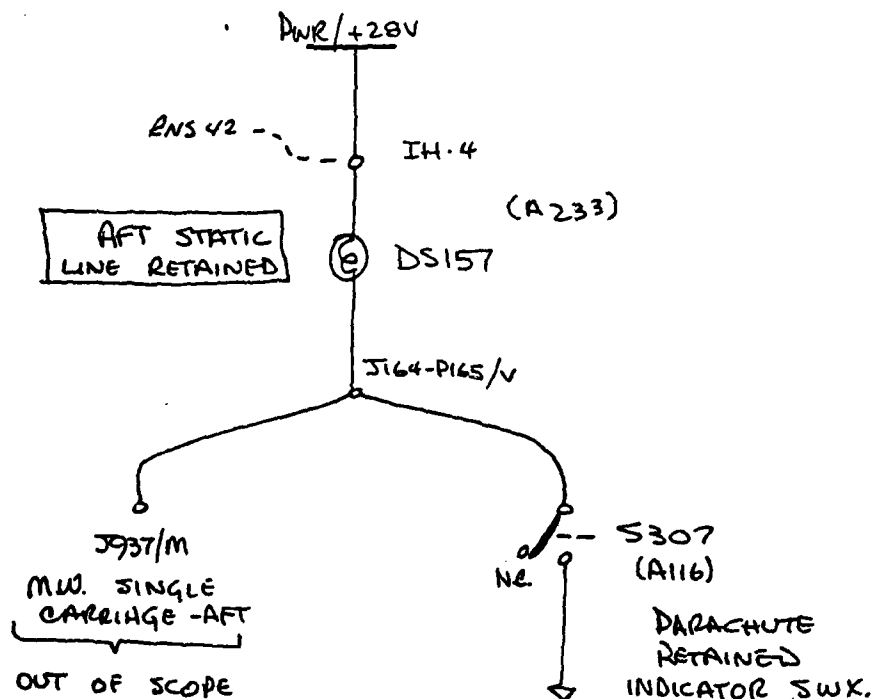 PWR/+28V
RNS 42
IH.4
(A233)
AFT STATIC
LINE RETAINED
DS157
J164-P165/V
J937/M
M.W. SINGLE
CARRIAGE-AFT
OUT OF SCOPE
S307
(A116)
N.C.
PARACHUTE
RETAINED
INDICATOR SWX.